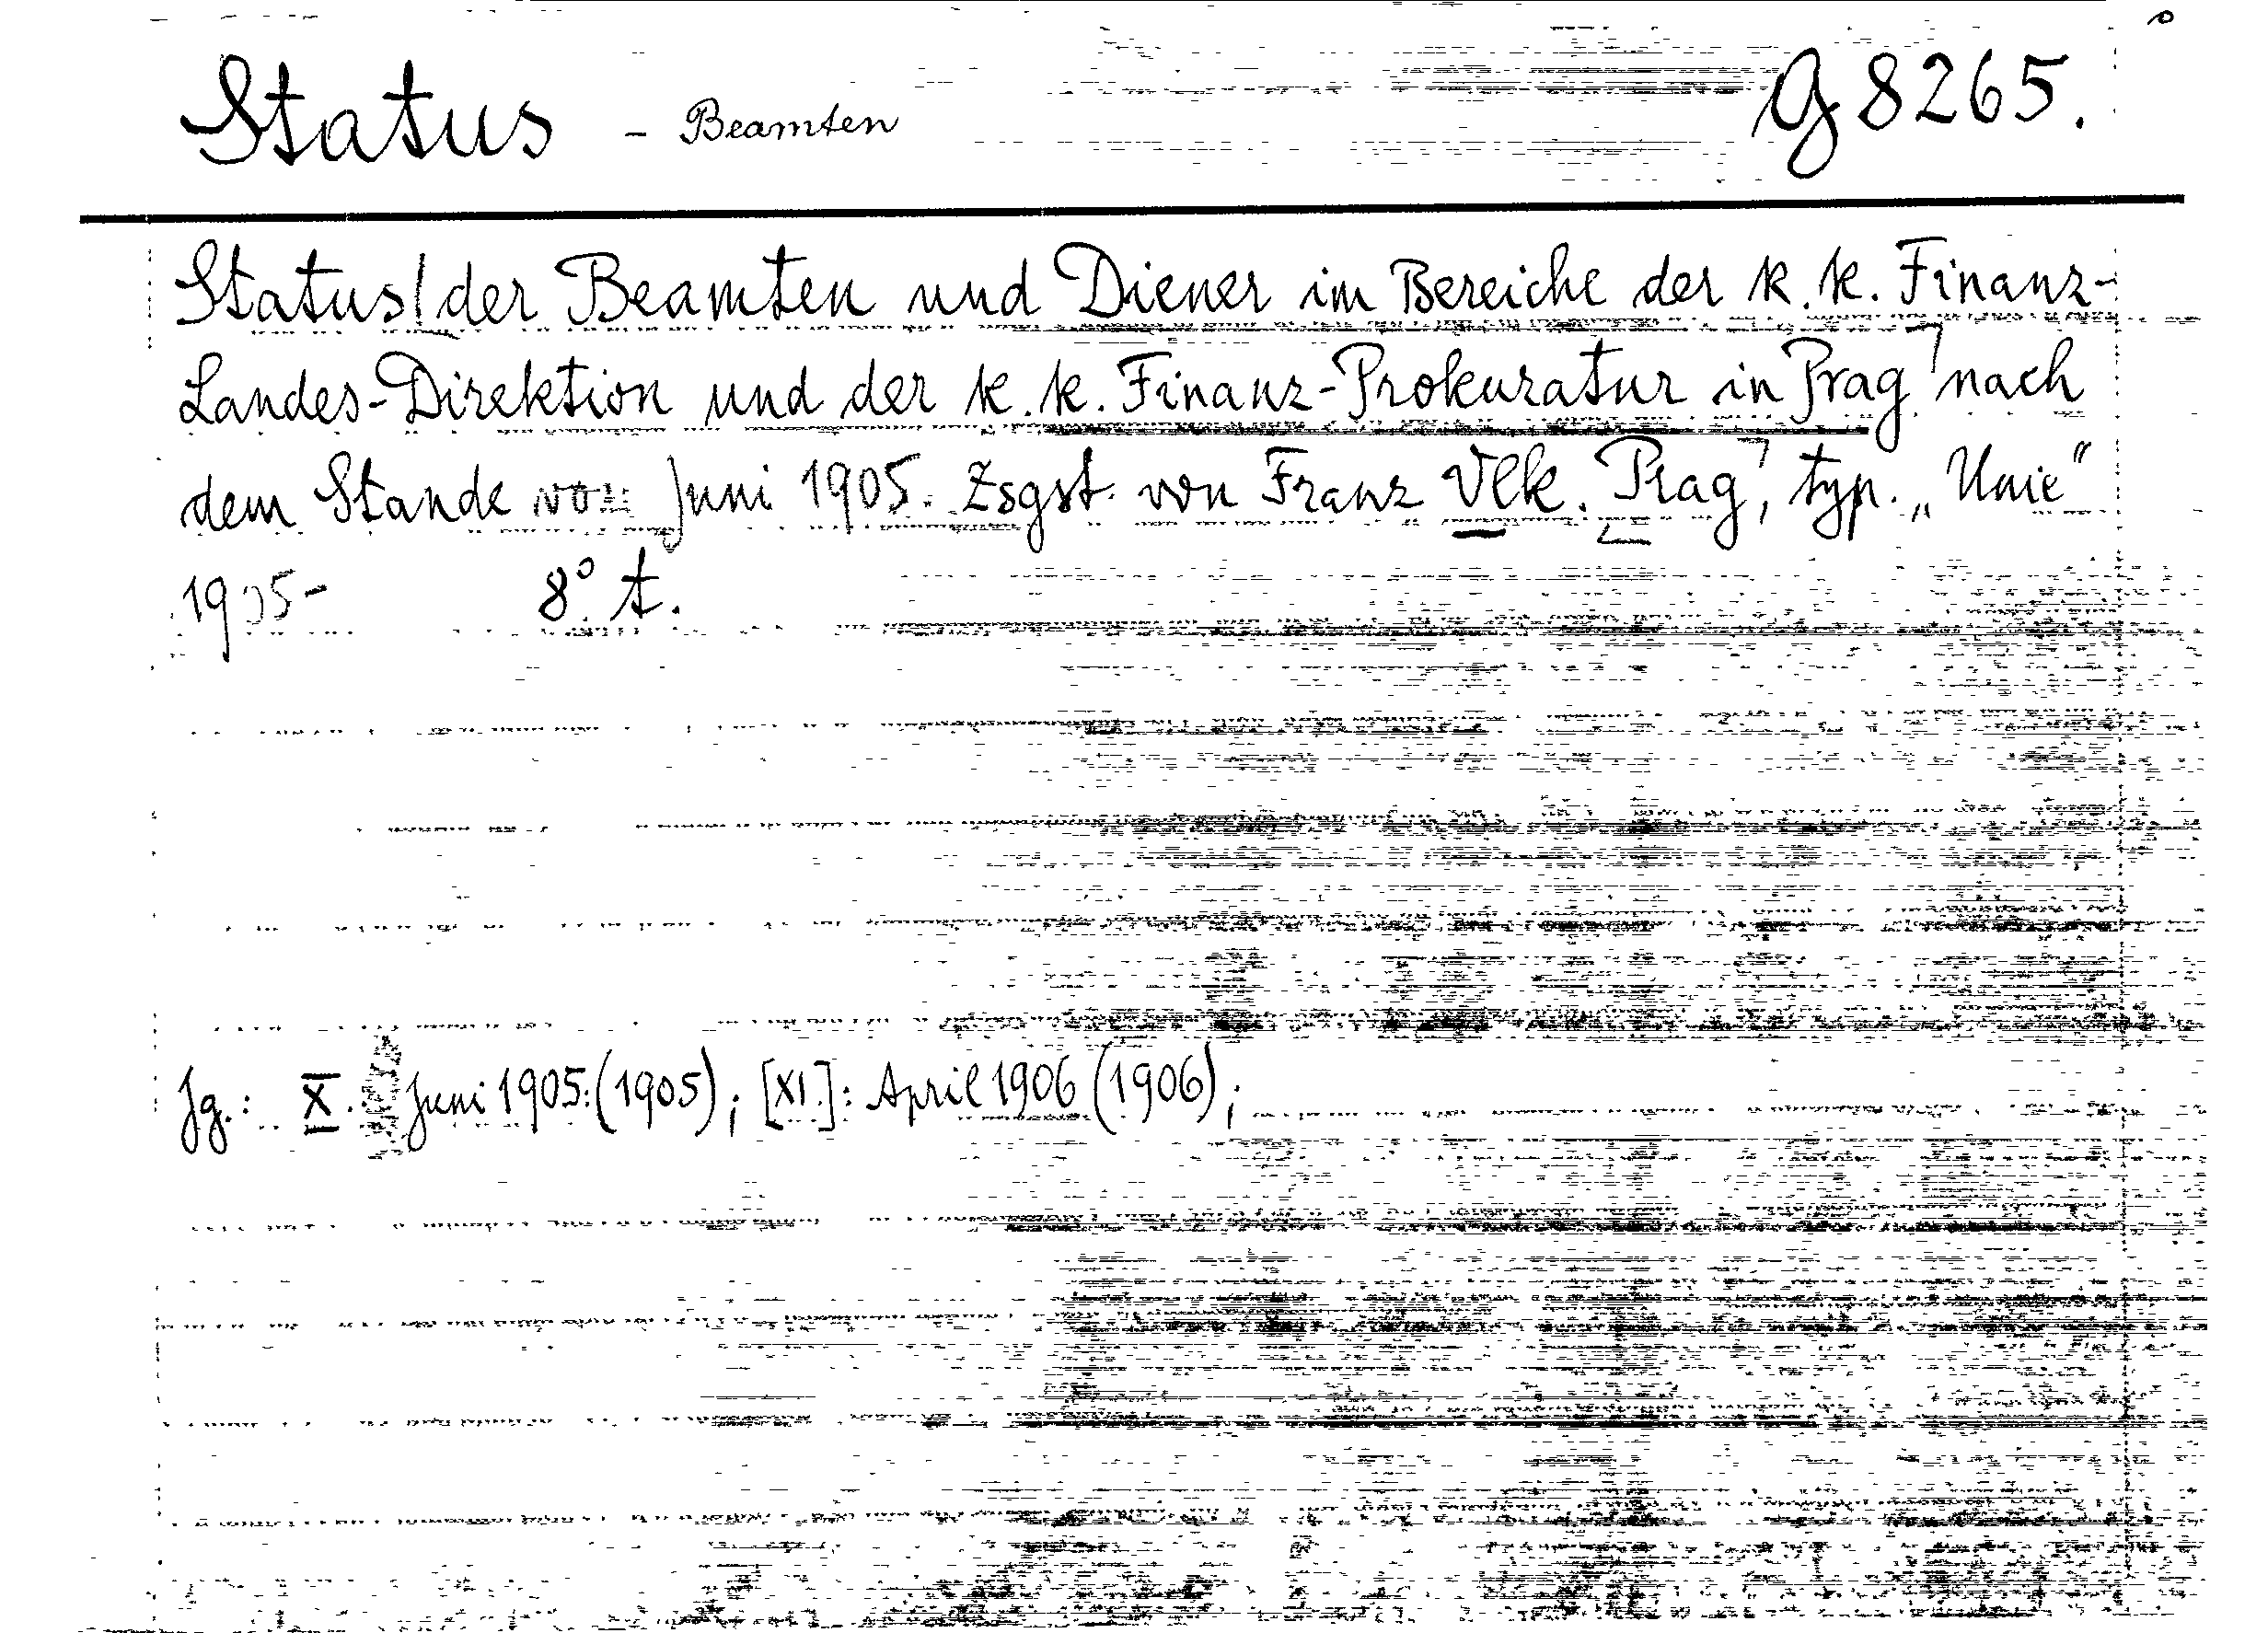 Status - Beamten G 8265.
Status/der Beamten und Diener im Bereiche der k.k. Finanz-
Landes-Direktion und der k.k. Finanz-Prokuratur in Prag nach
dem Stande von Juni 1905. Zsgst. von Franz Vlk. Prag, typ. „Unie“
1905- 8° t.
Jg.: X. Juni 1905:(1905); [XI.]: April 1906 (1906);